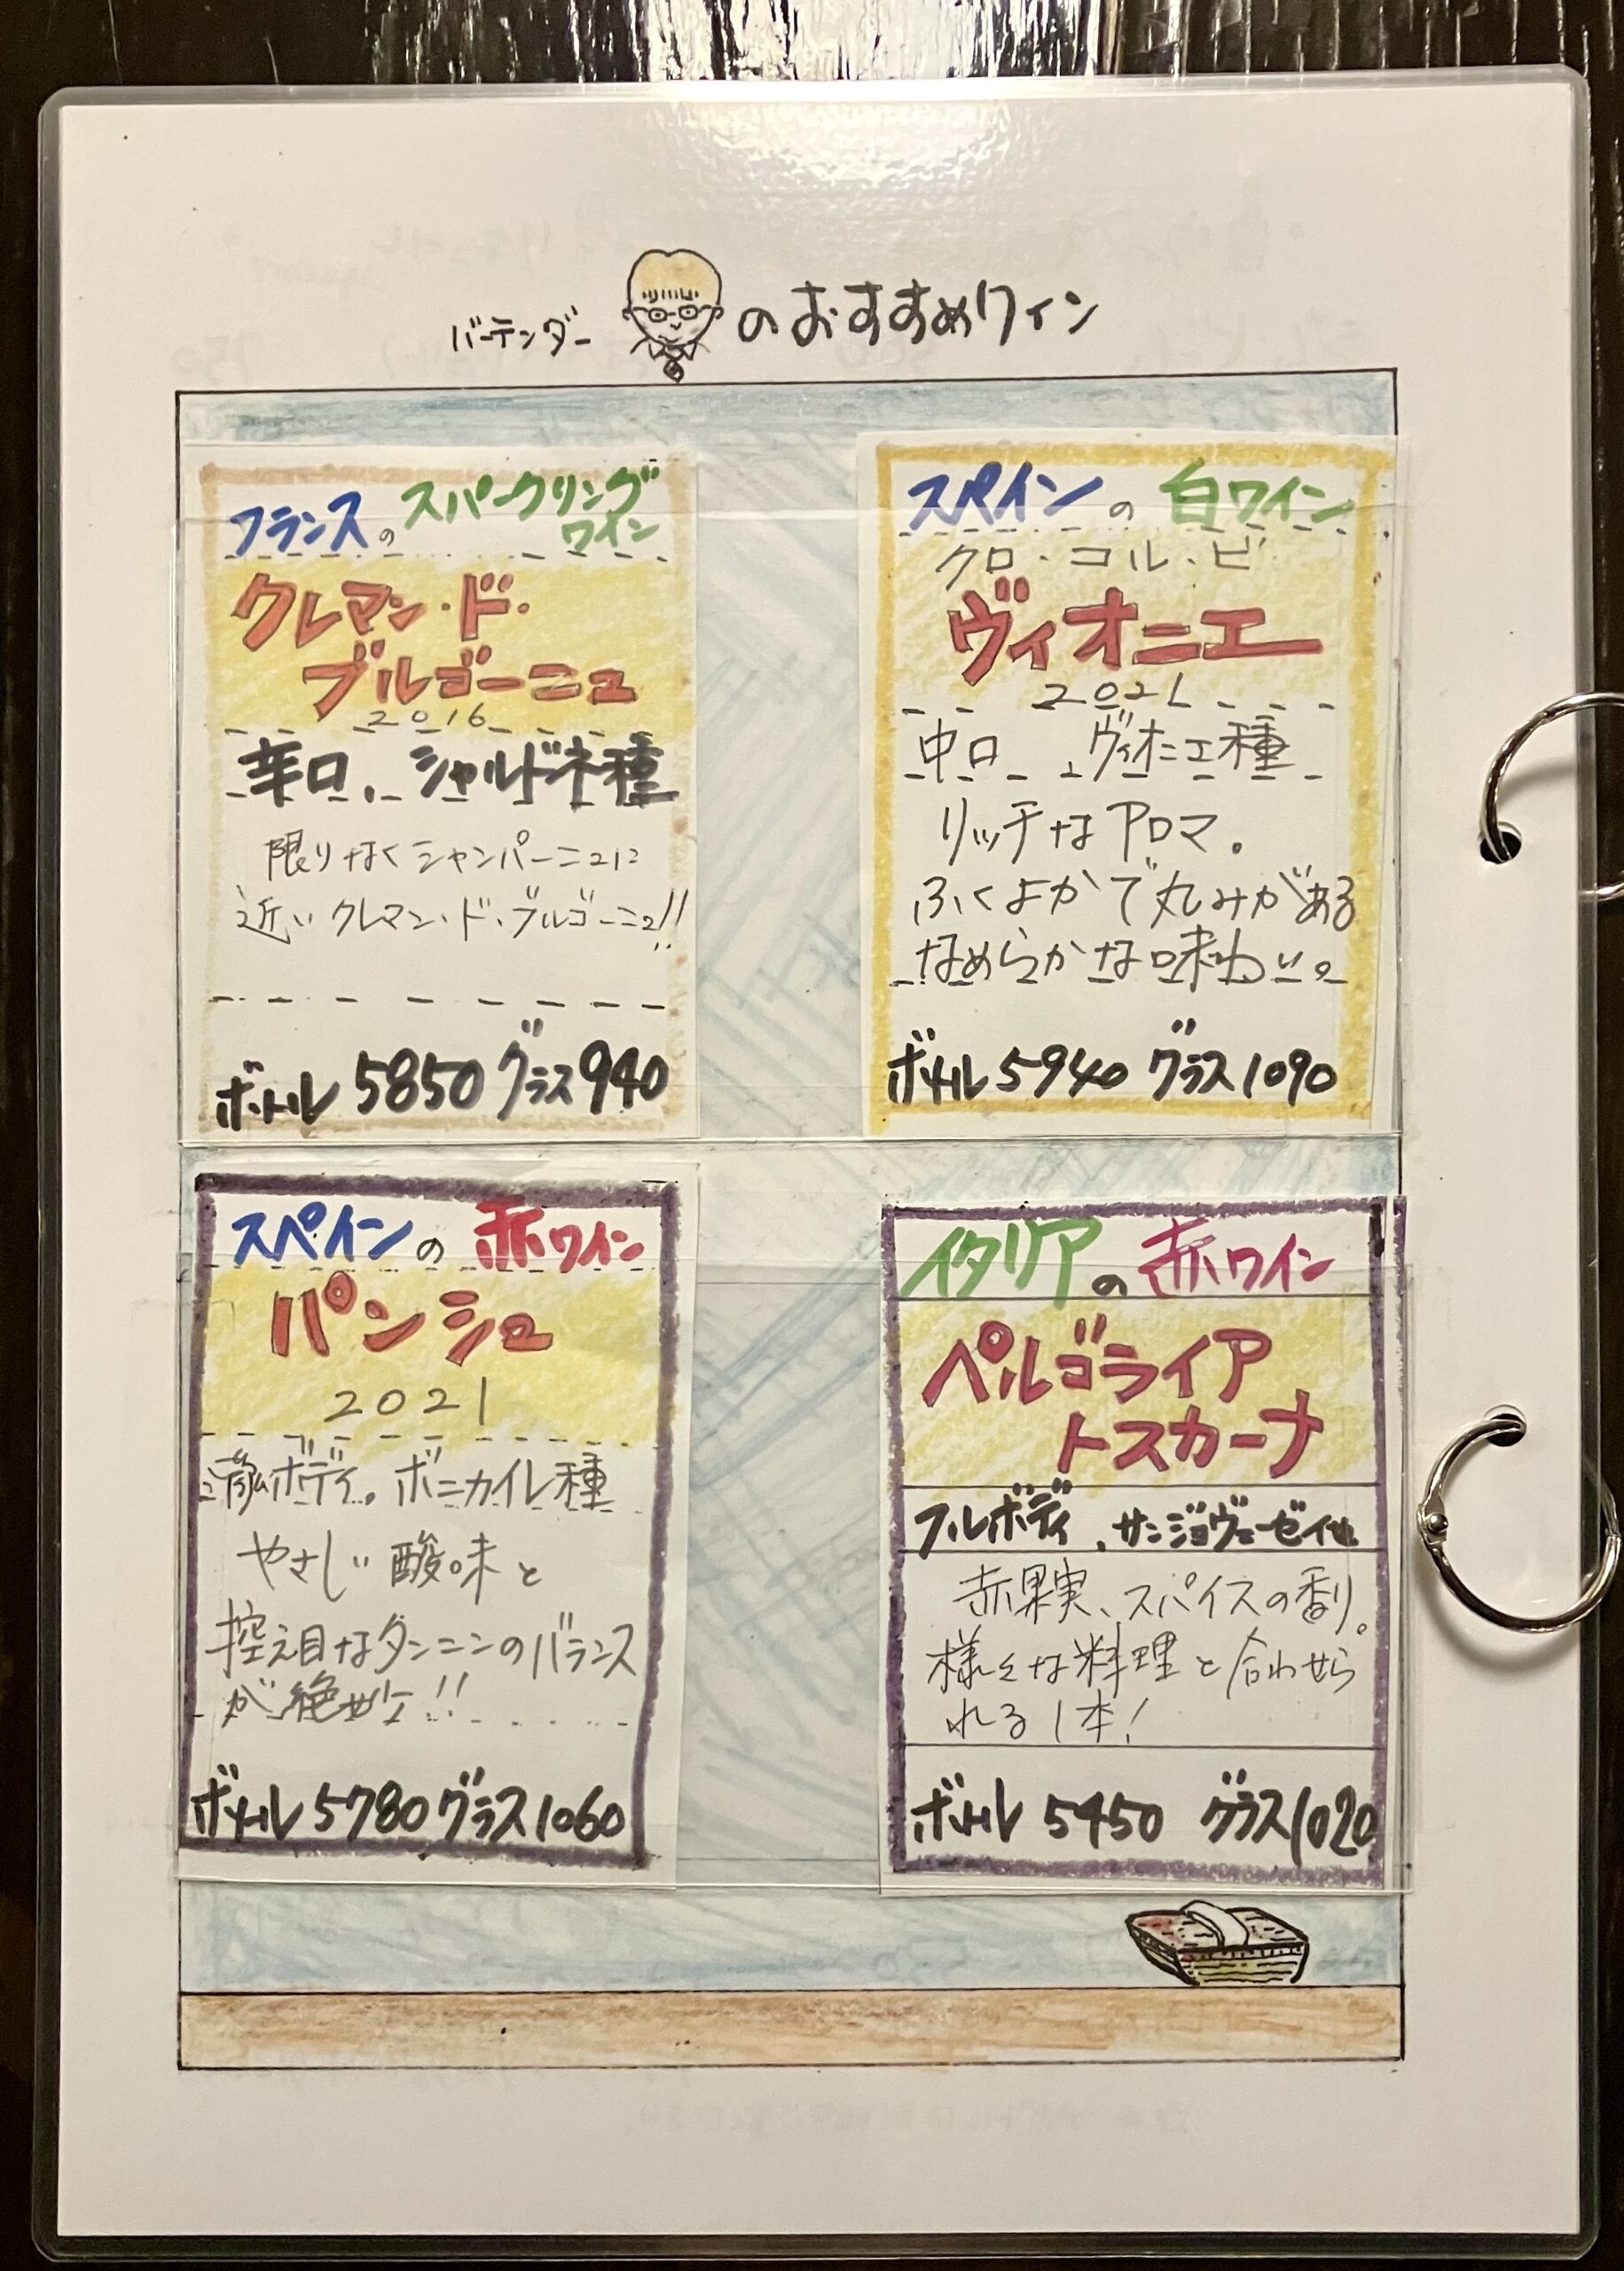 バーテンダー のおすすめワイン
フランスのスパークリング
ワイン
クレマン・ド・
ブルゴーニュ
2016
辛口、シャルドネ種
限りなくシャンパーニュに
近いクレマン・ド・ブルゴーニュ!!
ボトル 5850 グラス 940
スペインの白ワイン
クロ・コル・ビ
ヴィオニエ
2021
中口、ヴィオニエ種
リッチなアロマ。
ふくよかで丸みがある
なめらかな味わい。
ボトル 5940 グラス 1090
スペインの赤ワイン
パンシュ
2021
ボディ。ボニカイレ種
やさしい酸味と
控え目なタンニンのバランス
が絶妙!!
ボトル 5780 グラス 1060
イタリアの赤ワイン
ペルゴライア
トスカーナ
フルボディ、サンジョヴェーゼ他
赤果実、スパイスの香り。
様々な料理と合わせら
れる1本!
ボトル 5450 グラス 1020